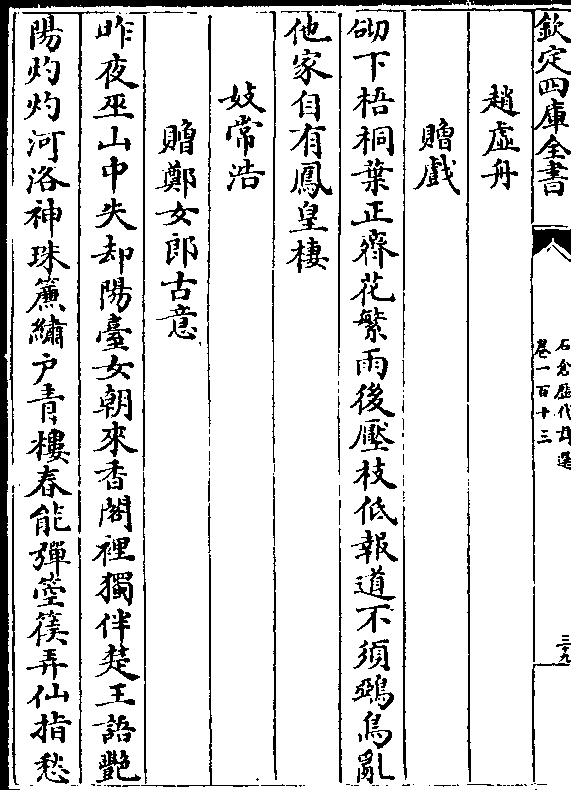 欽定四庫全書
石倉歷代詩選
卷一百十三
三十九
趙虛舟
贈戲
砌下梧桐葉正齊花繁雨後壓枝低報道不須鵶鳥亂
他家自有鳳皇棲
妓常浩
贈鄭女郎古意
昨夜巫山中失却陽臺女朝來香閣裡獨伴楚王語艷
陽灼灼河洛神珠簾繡户青樓春能彈箜篌弄仙指愁